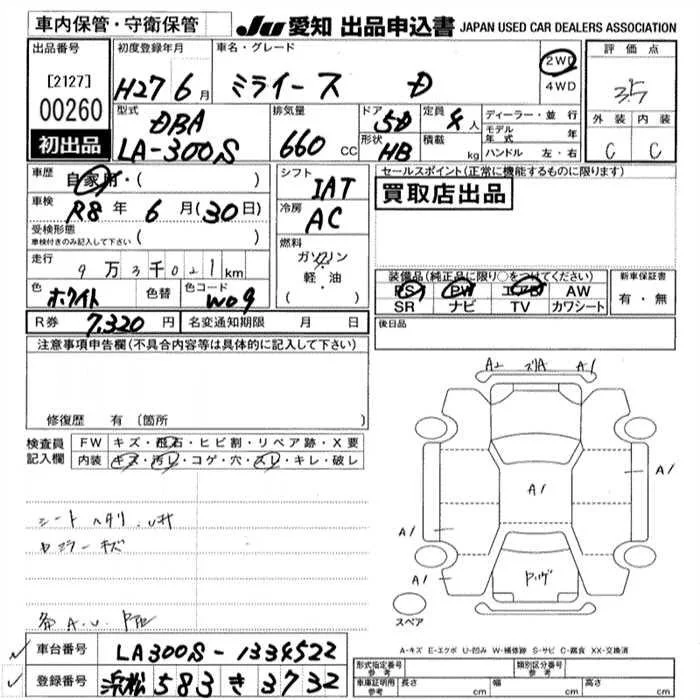 車内保管・守衛保管
JU 愛知 出品申込書 JAPAN USED CAR DEALERS ASSOCIATION
出品番号
[2127]
00260
初出品
初度登録年月
H27 6月
車名・グレード
ミライース D
2WD
4WD
評価点
3.5
外装 内装
C C
型式
DBA
LA-300S
排気量
660 CC
ドア 5D
形状 HB
定員 4人
積載 kg
ディーラー・並行
モデル年式 年
ハンドル 左・右
車歴 自家用・( )
車検 R8年 6月(30日)
受検形態
車検付きのみ記入して下さい ( )
走行
9万3千021km
色 ホワイト 色替 色コード W09
シフト
IAT
冷房
AC
燃料
ガソリン
軽・油
セールスポイント(正常に機能するものに限ります)
買取店出品
装備品(純正品に限り○をつけてください)
PS PW エアB AW
SR ナビ TV カワシート
新車保証書
有・無
R券 7,320円 名変通知期限 月 日
後日品
注意事項申告欄(不具合内容等は具体的に記入して下さい)
修復歴 有 〔箇所
検査員記入欄
FW キズ・飛石・ヒビ割・リペア跡・X要
内装 キズ・汚レ・コゲ・穴・スレ・キレ・破レ
シート
キズ
A.U.
A2 スリA A1
A1
A1
A1
A1
スペア
A-キズ E-エクボ U-凹み W-補修跡 S-サビ C-腐食 XX-交換済
車台番号 LA300S-1334522
登録番号 浜松 583 き 3732
形式指定番号 参考
類別区分番号 参考
車庫証明用 参考 長さ cm 幅 cm 高さ cm